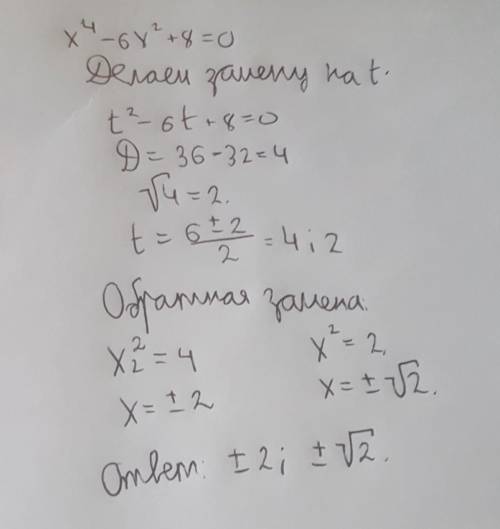 x⁴-6x²+8=0
Делаем замену на t.
t²-6t+8=0
D=36-32=4
√4=2.
t=(6±2)/2=4;2
Обратная замена.
x₂²=4 x²=2,
x=±2 x=±√2.
Ответ: ±2; ±√2.